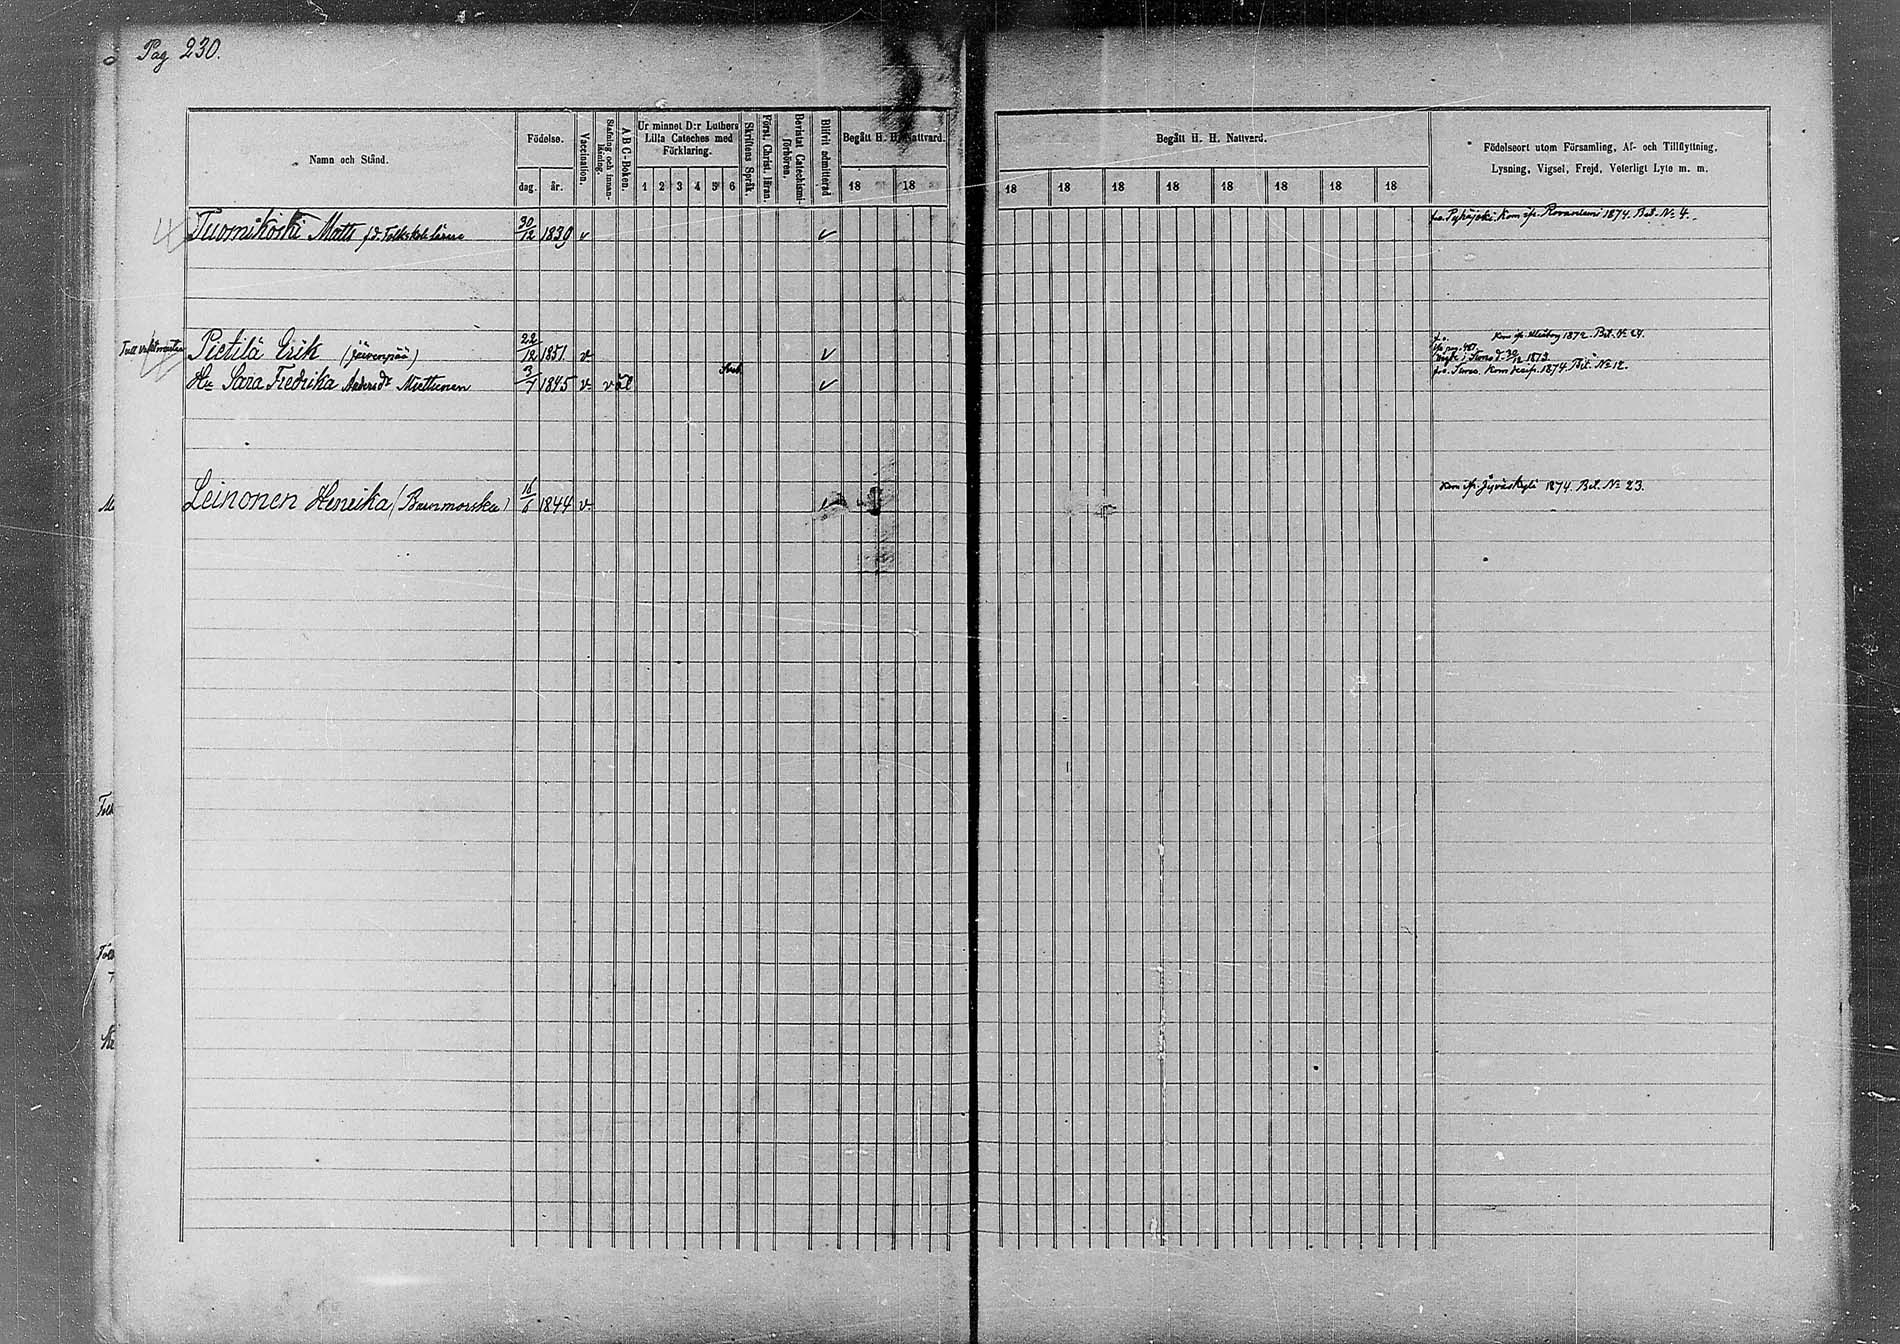 Pag 230.
Namn och Stånd.
Födelse.
dag. år.
Vaccination.
Stafning och Innanläsning.
ABC-Boken.
Ur minnet D:r Luthers Lilla Cateches med Förklaring.
1 2 3 4 5 6
Skriftens Språk.
Först. Christ. läran.
Bevistat Catechismi-förhören.
Blifvit admitterad
Begått H. H. Nattvard.
18 18
Begått H. H. Nattvard.
18 18 18 18 18 18 18 18
Födelseort utom Församling, Af- och Tillflyttning,
Lysning, Vigsel, Frejd, Veterligt Lyte m. m.
Tuomikoski Matts f.d. Folkskolelärare 30/12 1839 v v Kom ifr. Rovaniemi 1874. Bet. No 4.
Pietilä Erik (Järvenpää) 22/12 1851. v v Kom ifr. Uleåborg 1872. Bet. No 24.
Simo d. 30/12 1873.
Hu Sara Fredrika Andersdr Miettunen 3/7 1845 v v v Simo. Kom 1874. Bet. No 12.
Leinonen Henrika (Barnmorska) 16/6 1844 v v Kom ifr. Jyväskylä 1874. Bet. No 23.